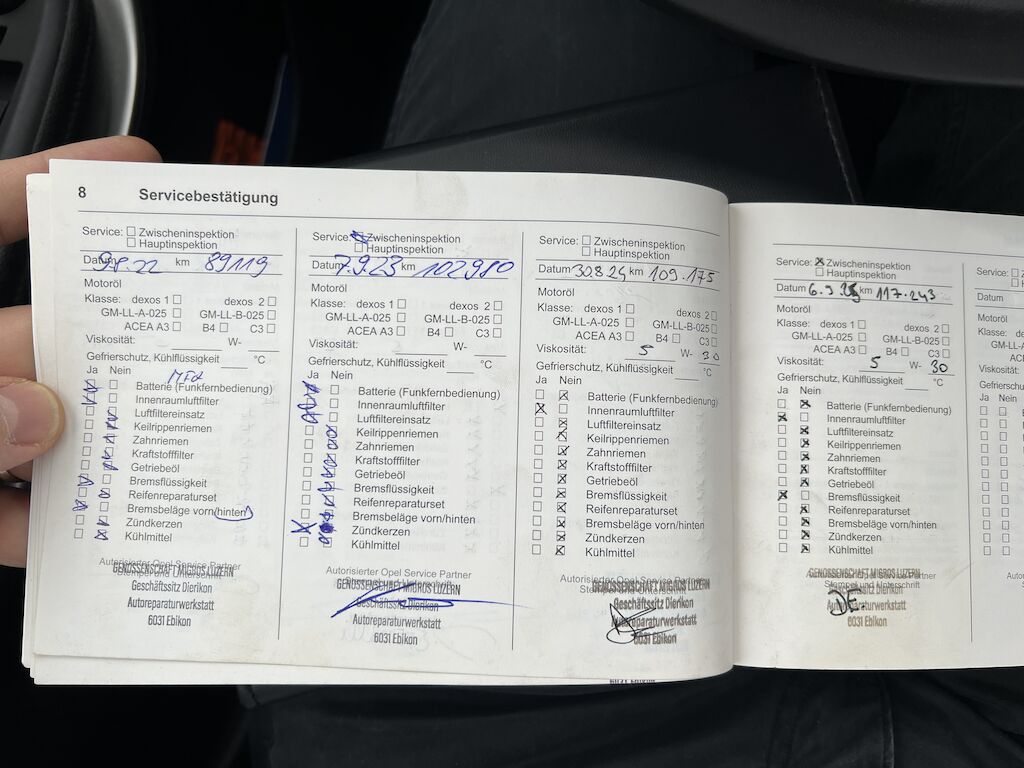 8 Servicebestätigung
Service: Zwischeninspektion
Hauptinspektion
Datum 9.8.22 km 89119
Motoröl
Klasse: dexos 1 dexos 2
GM-LL-A-025 GM-LL-B-025
ACEA A3 B4 C3
Viskosität: W-
Gefrierschutz, Kühlflüssigkeit °C
Ja Nein
Batterie (Funkfernbedienung)
Innenraumluftfilter
Luftfiltereinsatz
Keilrippenriemen
Zahnriemen
Kraftstofffilter
Getriebeöl
Bremsflüssigkeit
Reifenreparaturset
Bremsbeläge vorn/hinten
Zündkerzen
Kühlmittel
Autorisierter Opel Service Partner
Stempel und Unterschrift
GENOSSENSCHAFT MIGROS LUZERN
Geschäftssitz Dierikon
Autoreparaturwerkstatt
6031 Ebikon
Service: Zwischeninspektion
Hauptinspektion
Datum 7.9.23 km 102980
Motoröl
Klasse: dexos 1 dexos 2
GM-LL-A-025 GM-LL-B-025
ACEA A3 B4 C3
Viskosität: W-
Gefrierschutz, Kühlflüssigkeit °C
Ja Nein
Batterie (Funkfernbedienung)
Innenraumluftfilter
Luftfiltereinsatz
Keilrippenriemen
Zahnriemen
Kraftstofffilter
Getriebeöl
Bremsflüssigkeit
Reifenreparaturset
Bremsbeläge vorn/hinten
Zündkerzen
Kühlmittel
Autorisierter Opel Service Partner
Stempel und Unterschrift
GENOSSENSCHAFT MIGROS LUZERN
Geschäftssitz Dierikon
Autoreparaturwerkstatt
6031 Ebikon
Service: Zwischeninspektion
Hauptinspektion
Datum 30824 km 109.175
Motoröl
Klasse: dexos 1 dexos 2
GM-LL-A-025 GM-LL-B-025
ACEA A3 B4 C3
Viskosität: 5 W- 30
Gefrierschutz, Kühlflüssigkeit °C
Ja Nein
Batterie (Funkfernbedienung)
Innenraumluftfilter
Luftfiltereinsatz
Keilrippenriemen
Zahnriemen
Kraftstofffilter
Getriebeöl
Bremsflüssigkeit
Reifenreparaturset
Bremsbeläge vorn/hinten
Zündkerzen
Kühlmittel
Autorisierter Opel Service Partner
Stempel und Unterschrift
GENOSSENSCHAFT MIGROS LUZERN
Geschäftssitz Dierikon
Autoreparaturwerkstatt
6031 Ebikon
Service: Zwischeninspektion
Hauptinspektion
Datum 6.9.25 km 117.243
Motoröl
Klasse: dexos 1 dexos 2
GM-LL-A-025 GM-LL-B-025
ACEA A3 B4 C3
Viskosität: 5 W- 30
Gefrierschutz, Kühlflüssigkeit °C
Ja Nein
Batterie (Funkfernbedienung)
Innenraumluftfilter
Luftfiltereinsatz
Keilrippenriemen
Zahnriemen
Kraftstofffilter
Getriebeöl
Bremsflüssigkeit
Reifenreparaturset
Bremsbeläge vorn/hinten
Zündkerzen
Kühlmittel
Autorisierter Opel Service Partner
Stempel und Unterschrift
GENOSSENSCHAFT MIGROS LUZERN
Geschäftssitz Dierikon
Autoreparaturwerkstatt
6031 Ebikon
Service:
Datum
Motoröl
Klasse:
Viskosität:
Ja Nein